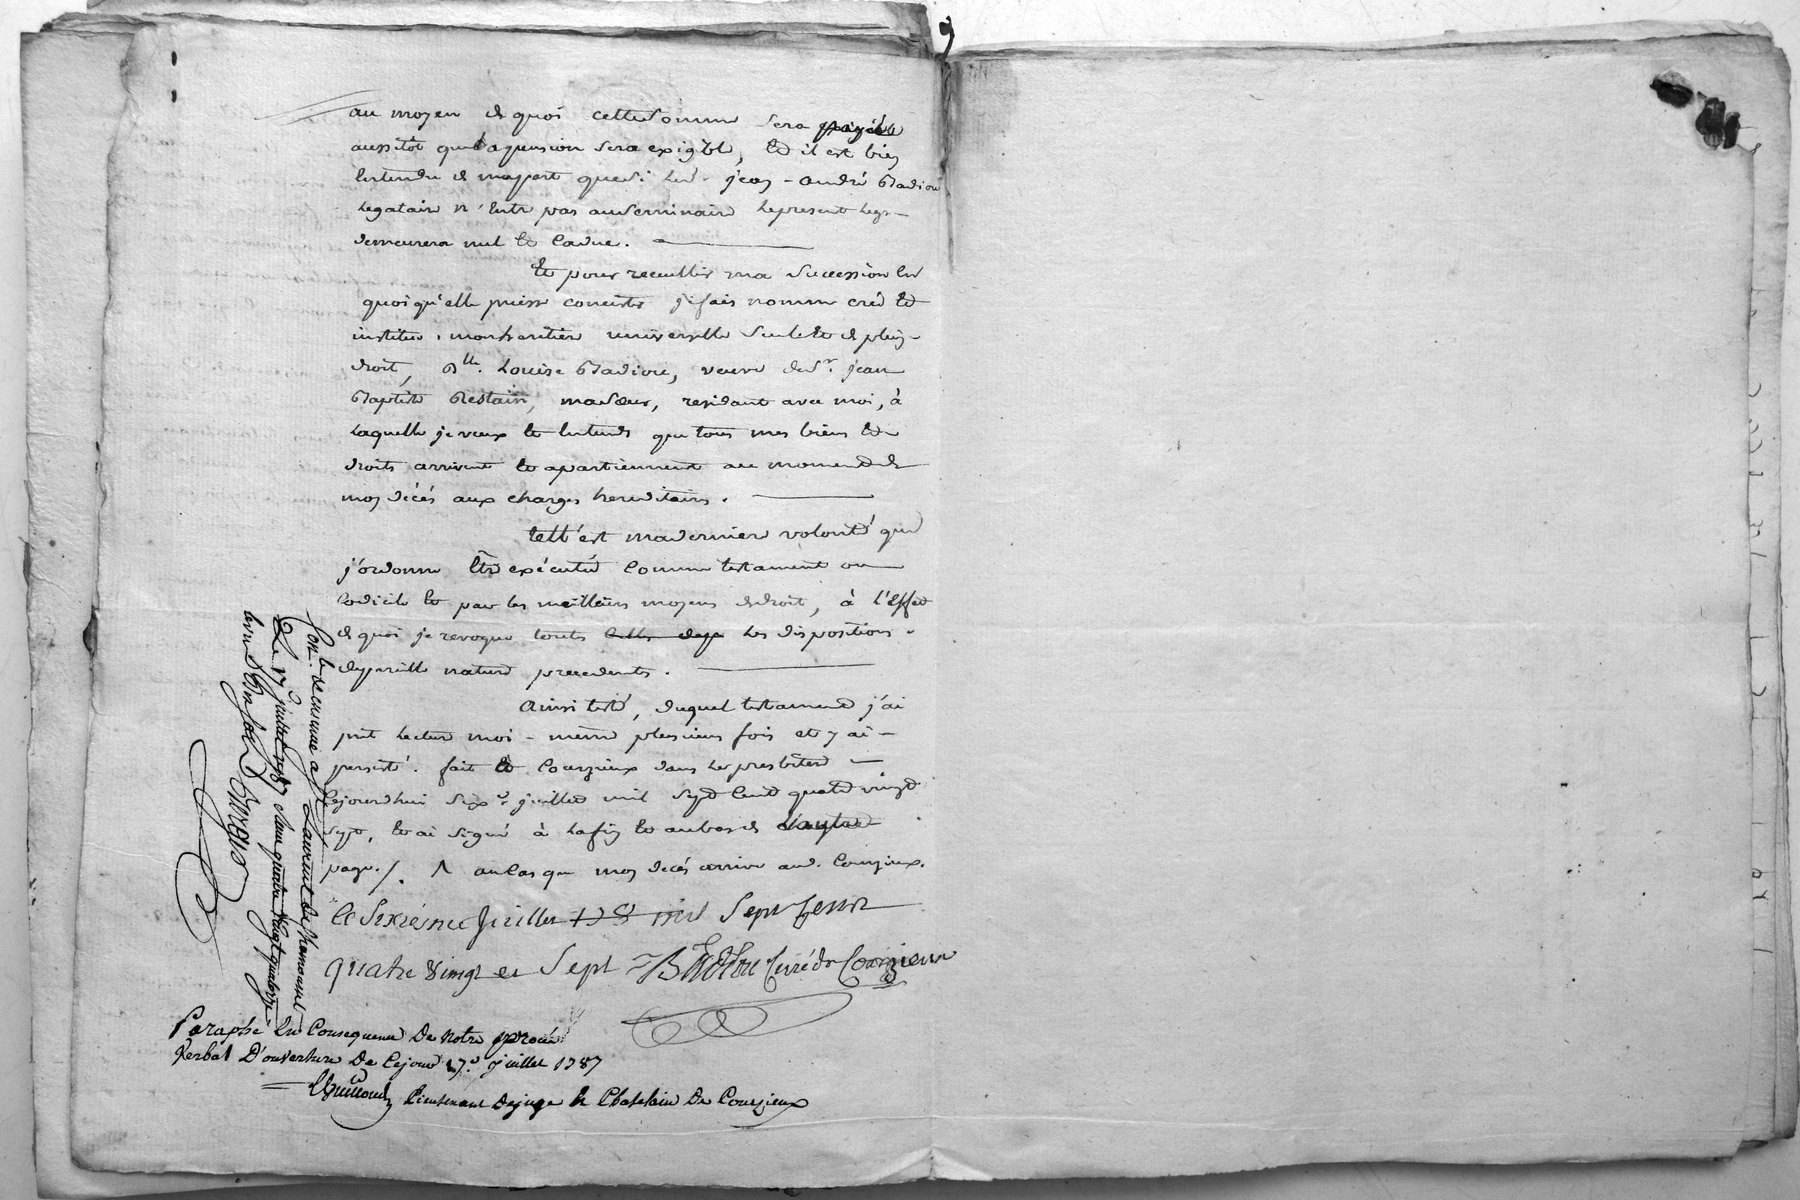 au moyen de quoi cette somme sera payable
aussitot que la pension sera exigible, et il est bien
entendu de ma part que si led. s.r jean-andré Badiou
legataire n'entre pas au seminaire le present legs
demeurera nul et caduc.
Et pour receuillir ma succession en
quoiqu'elle puisse consister j'e fais nomme crée et
institue mon heritiere universelle seule et de plein
droit, D.lle Louise Badiou, veuve de S.r jean
Baptiste Restain, ma sœur, residant avec moi, à
laquelle je veux et entends que tous mes biens et
droits arrivent et apartiennent au moment de
mon décés aux charges hereditaires.
telle est ma derniere volonté que
j'ordonne être exécutée comme testament ou
codicile et par les meilleurs moyens de droit, à l'effet
de quoi je revoque toutes les dispositions
de pareille nature precedentes.
Ainsi testé, duquel testament j'ai
prit lecture moi-même plusieurs fois et y ai
persisté. fait à Courzieux dans le presbitere
cejourd'hui six.e juillet mil sept cent quatre vingt
sept, et ai signé à la fin et au bas de
page./. au cas que mon decés arrive aud. Courzieux.
le sixiesme juillet mil sept cent
quatre vingt et sept Badiou Curé de Courzieux
Con.lé de
Laurent de Chamousset
Le 17.e juillet 1787
Paraphé en Consequence De Notre procés
Verbal D'ouverture De Cejour 17.e juillet 1787
Lieutenant De juge et Chatelain De Courzieux